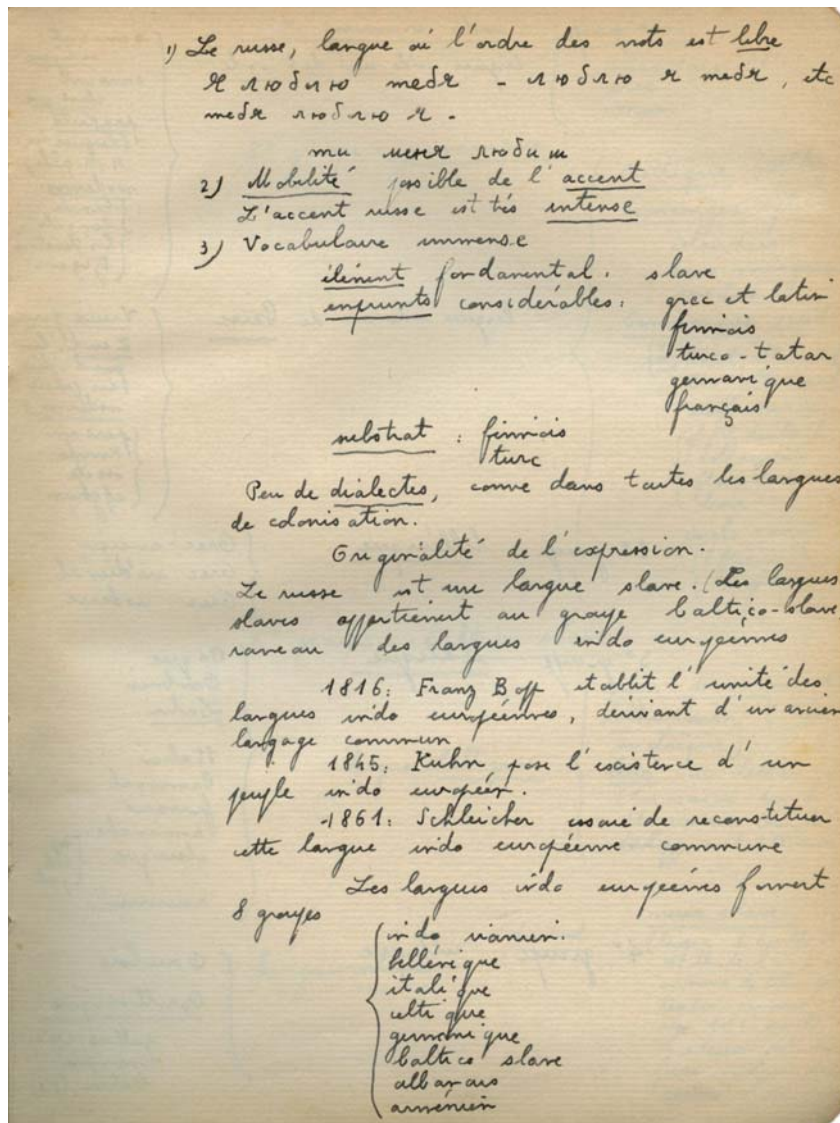 1) Le russe, langue où l'ordre des mots est libre
Я люблю тебя - люблю я тебя, etc
тебя люблю я -
ты меня любиш
2) Mobilité possible de l'accent
L'accent russe est très intense
3) Vocabulaire immense
élément fondamental. slave
emprunts considérables: grec et latin
finnois
turco-tatar
germanique
français
substrat : finnois
turc
Peu de dialectes, comme dans toutes les langues
de colonisation.
Originalité de l'expression.
Le russe est une langue slave. (Les langues
slaves appartiennent au groupe baltico-slave
rameau des langues indo européennes
1816: Franz Bopp établit l'unité des
langues indo européennes, dérivant d'un ancien
langage commun
1845: Kuhn pose l'existence d'un
peuple indo européen.
1861: Schleicher essaie de reconstituer
cette langue indo européenne commune
Les langues indo européennes forment
8 groupes
indo iranien.
hellénique
italique
celtique
germanique
baltico slave
albanais
arménien